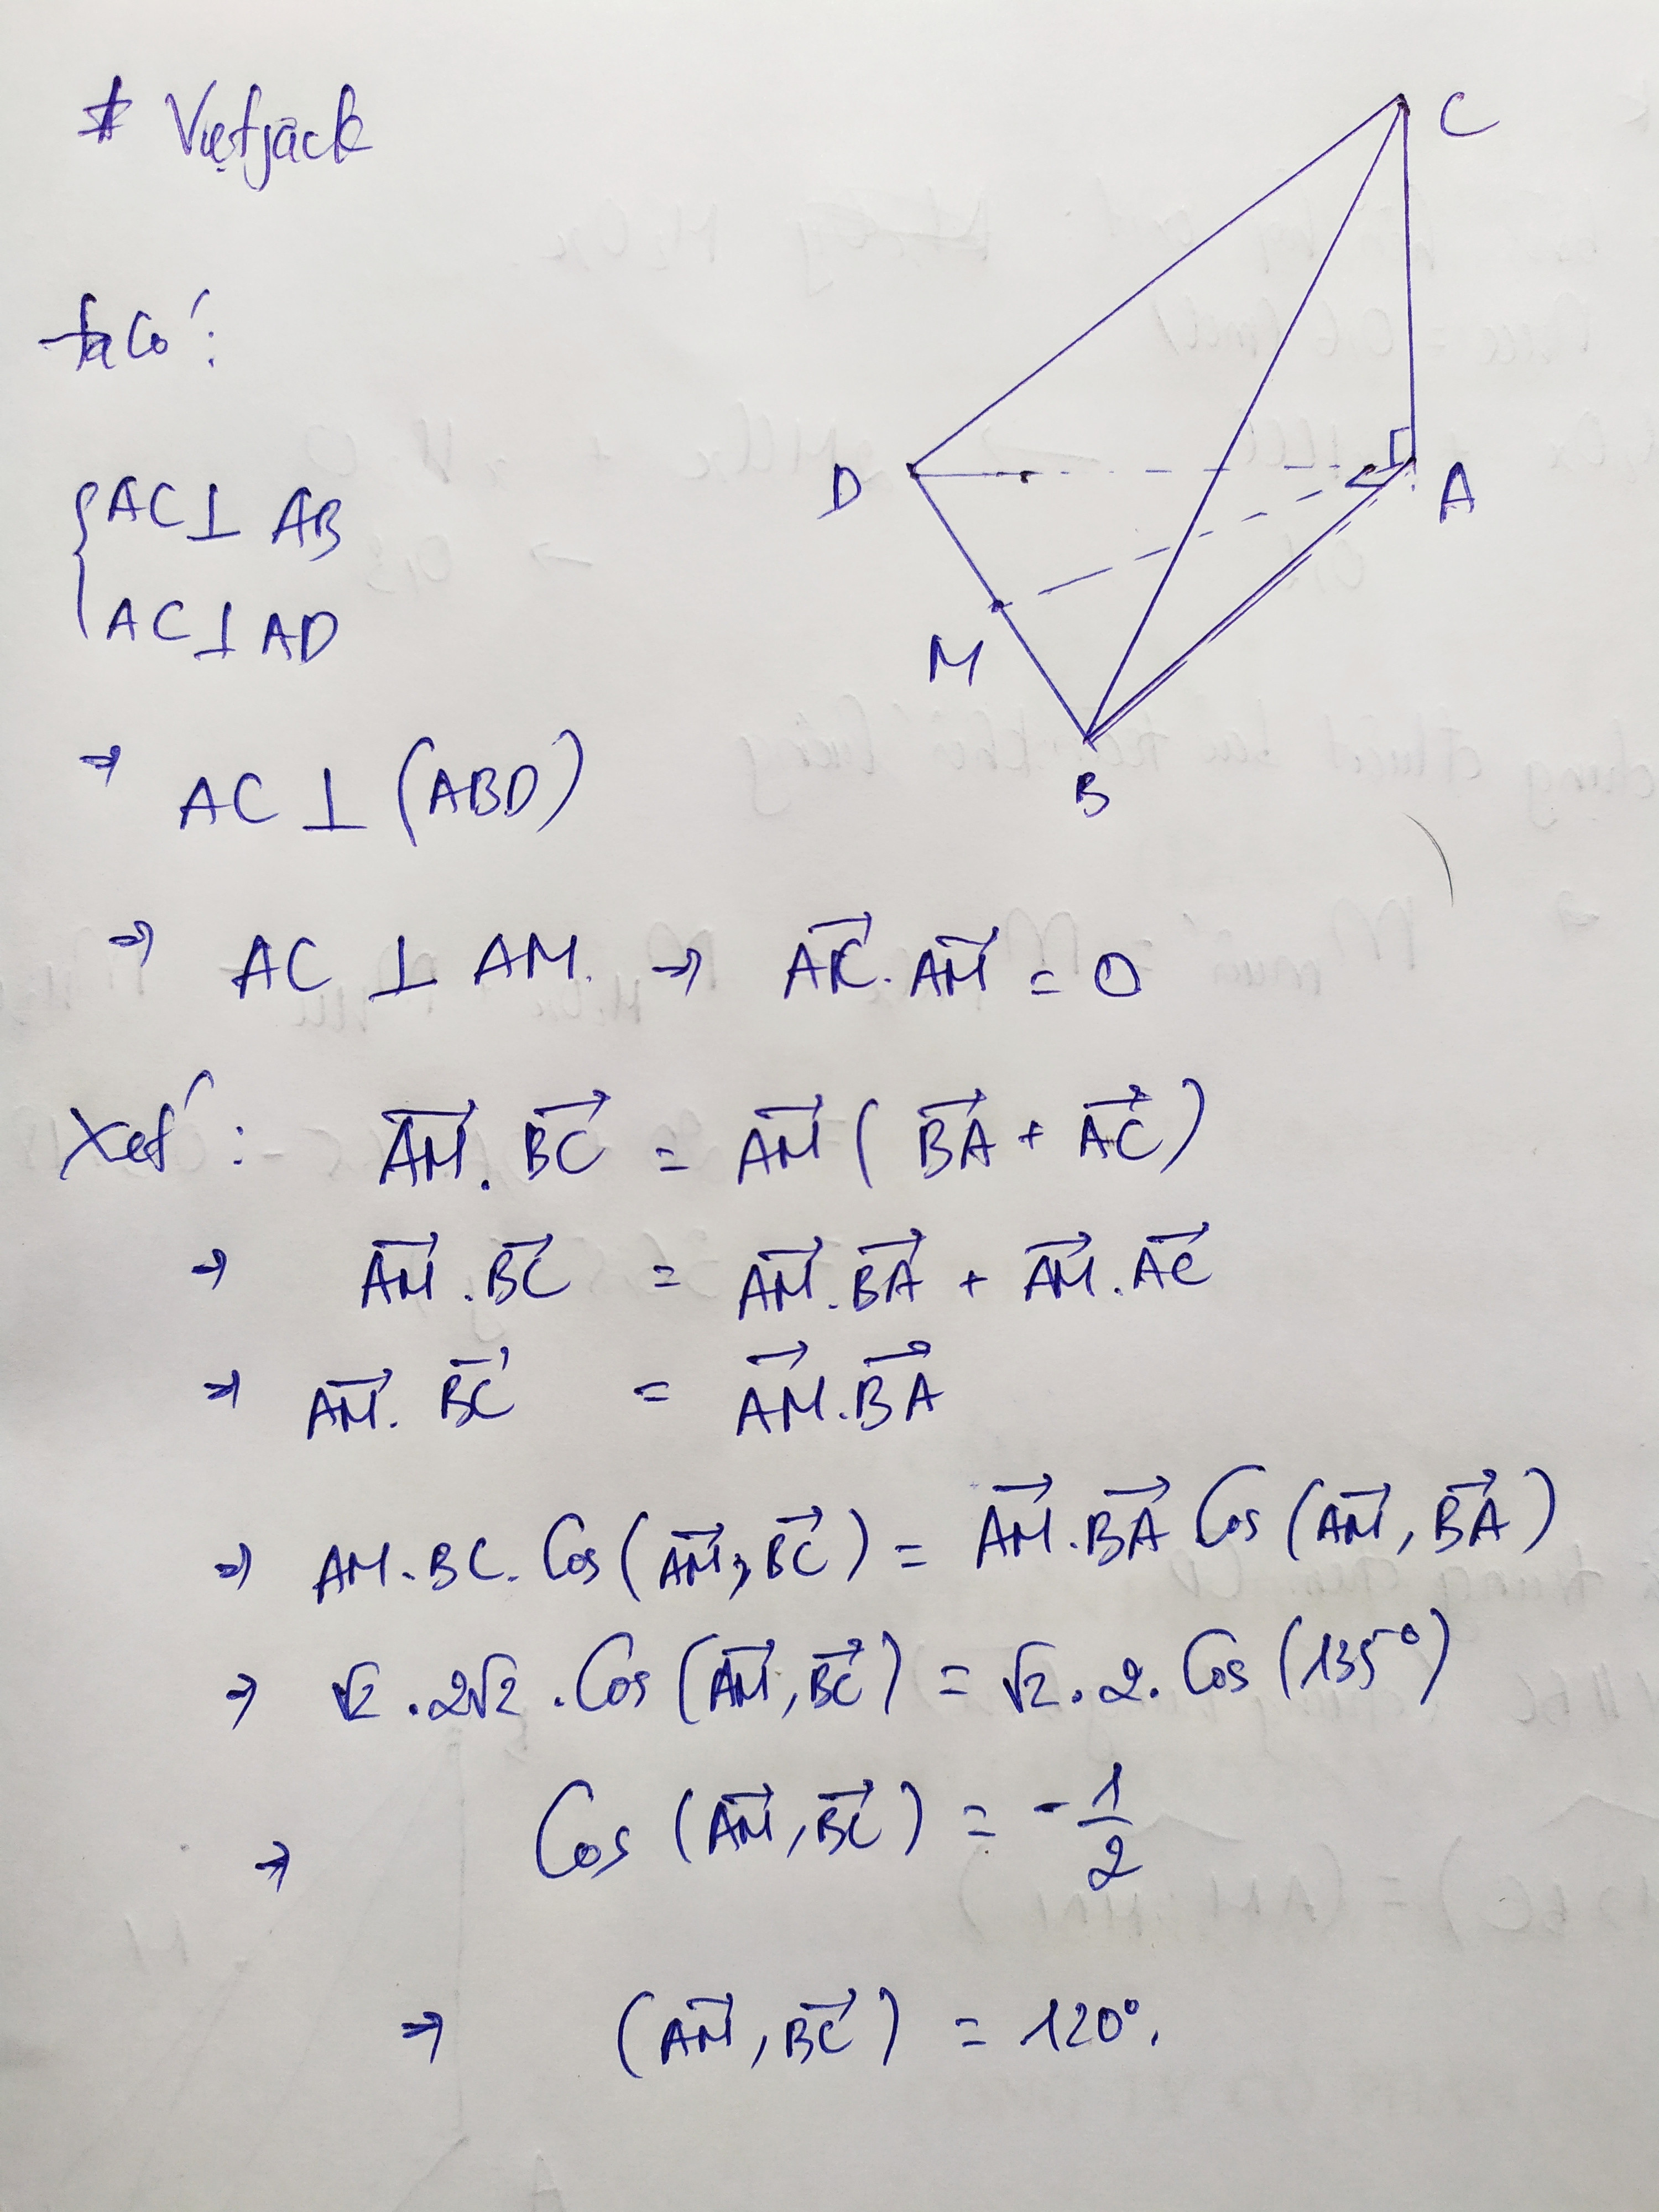 * Vietjack
C
ta có:
D
A
{ AC ⊥ AB
AC ⊥ AD
M
B
⇒ AC ⊥ (ABD)
⇒ AC ⊥ AM. ⇒ \overrightarrow{AC}.\overrightarrow{AM} = 0
Xét: \overrightarrow{AM}.\overrightarrow{BC} = \overrightarrow{AM}(\overrightarrow{BA} + \overrightarrow{AC})
⇒ \overrightarrow{AM}.\overrightarrow{BC} = \overrightarrow{AM}.\overrightarrow{BA} + \overrightarrow{AM}.\overrightarrow{AC}
⇒ \overrightarrow{AM}.\overrightarrow{BC} = \overrightarrow{AM}.\overrightarrow{BA}
⇒ AM.BC.Cos(\overrightarrow{AM}, \overrightarrow{BC}) = \overrightarrow{AM}.\overrightarrow{BA} Cos(\overrightarrow{AM}, \overrightarrow{BA})
⇒ √2.2√2.Cos(\overrightarrow{AM}, \overrightarrow{BC}) = √2.2.Cos(135°)
⇒ Cos(\overrightarrow{AM}, \overrightarrow{BC}) = -1/2
⇒ (\overrightarrow{AM}, \overrightarrow{BC}) = 120°.